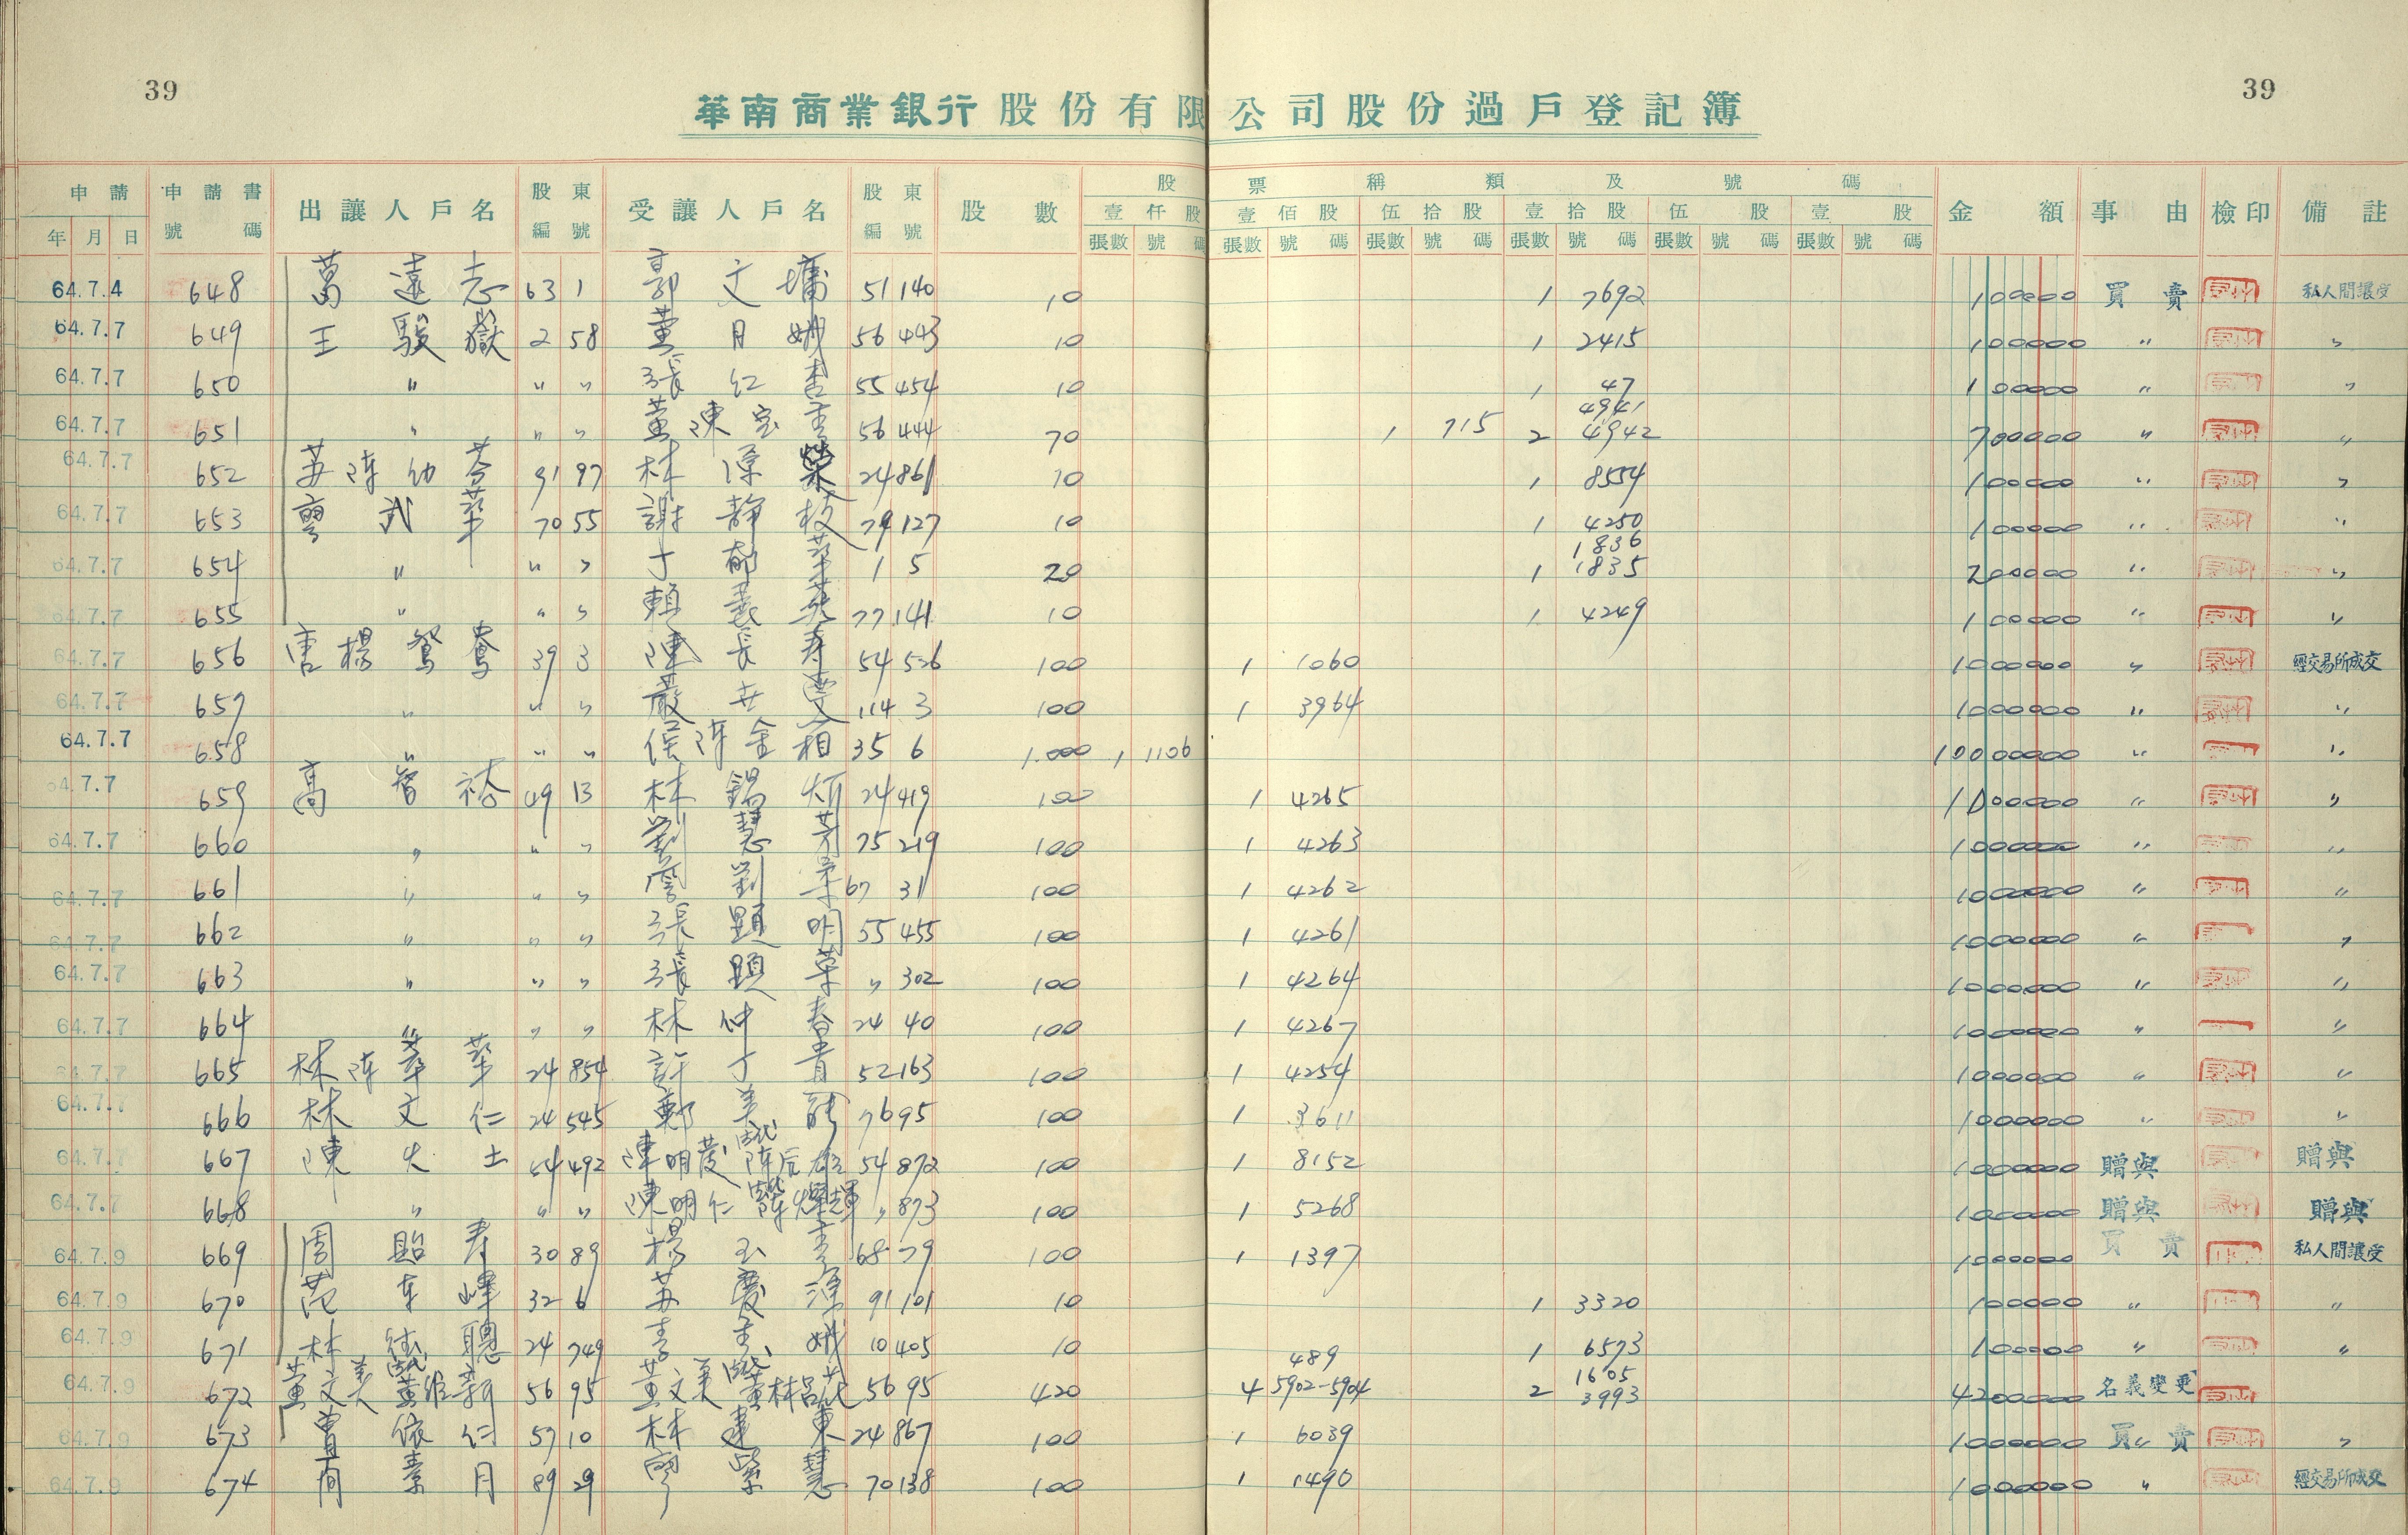 39
39
華南商業銀行股份有限公司股份過戶登記簿
申請 申請書 出讓人戶名 股東 受讓人戶名 股東 股數 股票種類及號碼 金額 事由 檢印 備註
年 月 日 號碼 編號 編號 壹仟股 壹佰股 伍拾股 壹拾股 伍股 壹股
張數 號碼 張數 號碼 張數 號碼 張數 號碼 張數 號碼 張數 號碼
64.7.4 648 葛遠志 63 1 郭文墉 51 140 10 1 7692 100000 買賣 私人間讓受
64.7.7 649 王駿嶽 2 58 黃月娥 56 443 10 1 2415 100000 〃 〃
64.7.7 650 〃 〃 〃 張仁 55 454 10 1 47 100000 〃 〃
64.7.7 651 〃 〃 〃 黃陳 56 444 70 1 715 2 4941 4942 700000 〃 〃
64.7.7 652 91 97 林 榮 24 861 10 1 8554 100000 〃 〃
64.7.7 653 70 55 謝靜枝 79 127 10 1 4250 100000 〃 〃
64.7.7 654 〃 〃 〃 丁郁華 1 5 20 1 1836 1835 200000 〃 〃
64.7.7 655 〃 〃 〃 賴義 77 141 10 1 4249 100000 〃 〃
64.7.7 656 唐楊鴛鴦 39 3 陳長壽 54 526 100 1 1060 1000000 〃 經交易所成交
64.7.7 657 〃 〃 〃 嚴 114 3 100 1 3964 1000000 〃 〃
64.7.7 658 〃 〃 〃 侯陳金相 35 6 1.000 1 1106 10000000 〃 〃
64.7.7 659 高 49 13 林錫 24 419 100 1 4265 1000000 〃 〃
64.7.7 660 〃 〃 〃 劉慧芳 75 219 100 1 4263 1000000 〃 〃
64.7.7 661 〃 〃 〃 劉 67 31 100 1 4262 1000000 〃 〃
64.7.7 662 〃 〃 〃 張顯明 55 455 100 1 4261 1000000 〃 〃
64.7.7 663 〃 〃 〃 張顯 〃 302 100 1 4264 1000000 〃 〃
64.7.7 664 〃 〃 〃 林仲春 24 40 100 1 4267 1000000 〃 〃
64.7.7 665 林陳 華 24 854 許丁貴 52 163 100 1 4254 1000000 〃 〃
64.7.7 666 林文仁 24 545 鄭美 76 95 100 1 3611 1000000 〃 〃
64.7.7 667 陳火土 54 492 陳明慶 54 872 100 1 8152 1000000 贈與 贈與
64.7.7 668 〃 〃 〃 陳明仁 〃 873 100 1 5268 1000000 贈與 贈與
64.7.9 669 周貽壽 30 89 楊玉 68 79 100 1 1397 1000000 買賣 私人間讓受
64.7.9 670 范 32 6 慶 91 101 10 1 3320 100000 〃 〃
64.7.9 671 林 聰 24 749 李 娥 10 405 10 1 6573 100000 〃 〃
64.7.9 672 黃文美 56 95 黃文美 56 95 420 4 489 5902-5904 2 1605 3993 4200000 名義變更
64.7.9 673 曾依仁 57 10 林建東 24 867 100 1 6039 1000000 買賣 〃
64.7.9 674 簡素月 89 29 廖 慧 70 138 100 1 1490 1000000 〃 經交易所成交